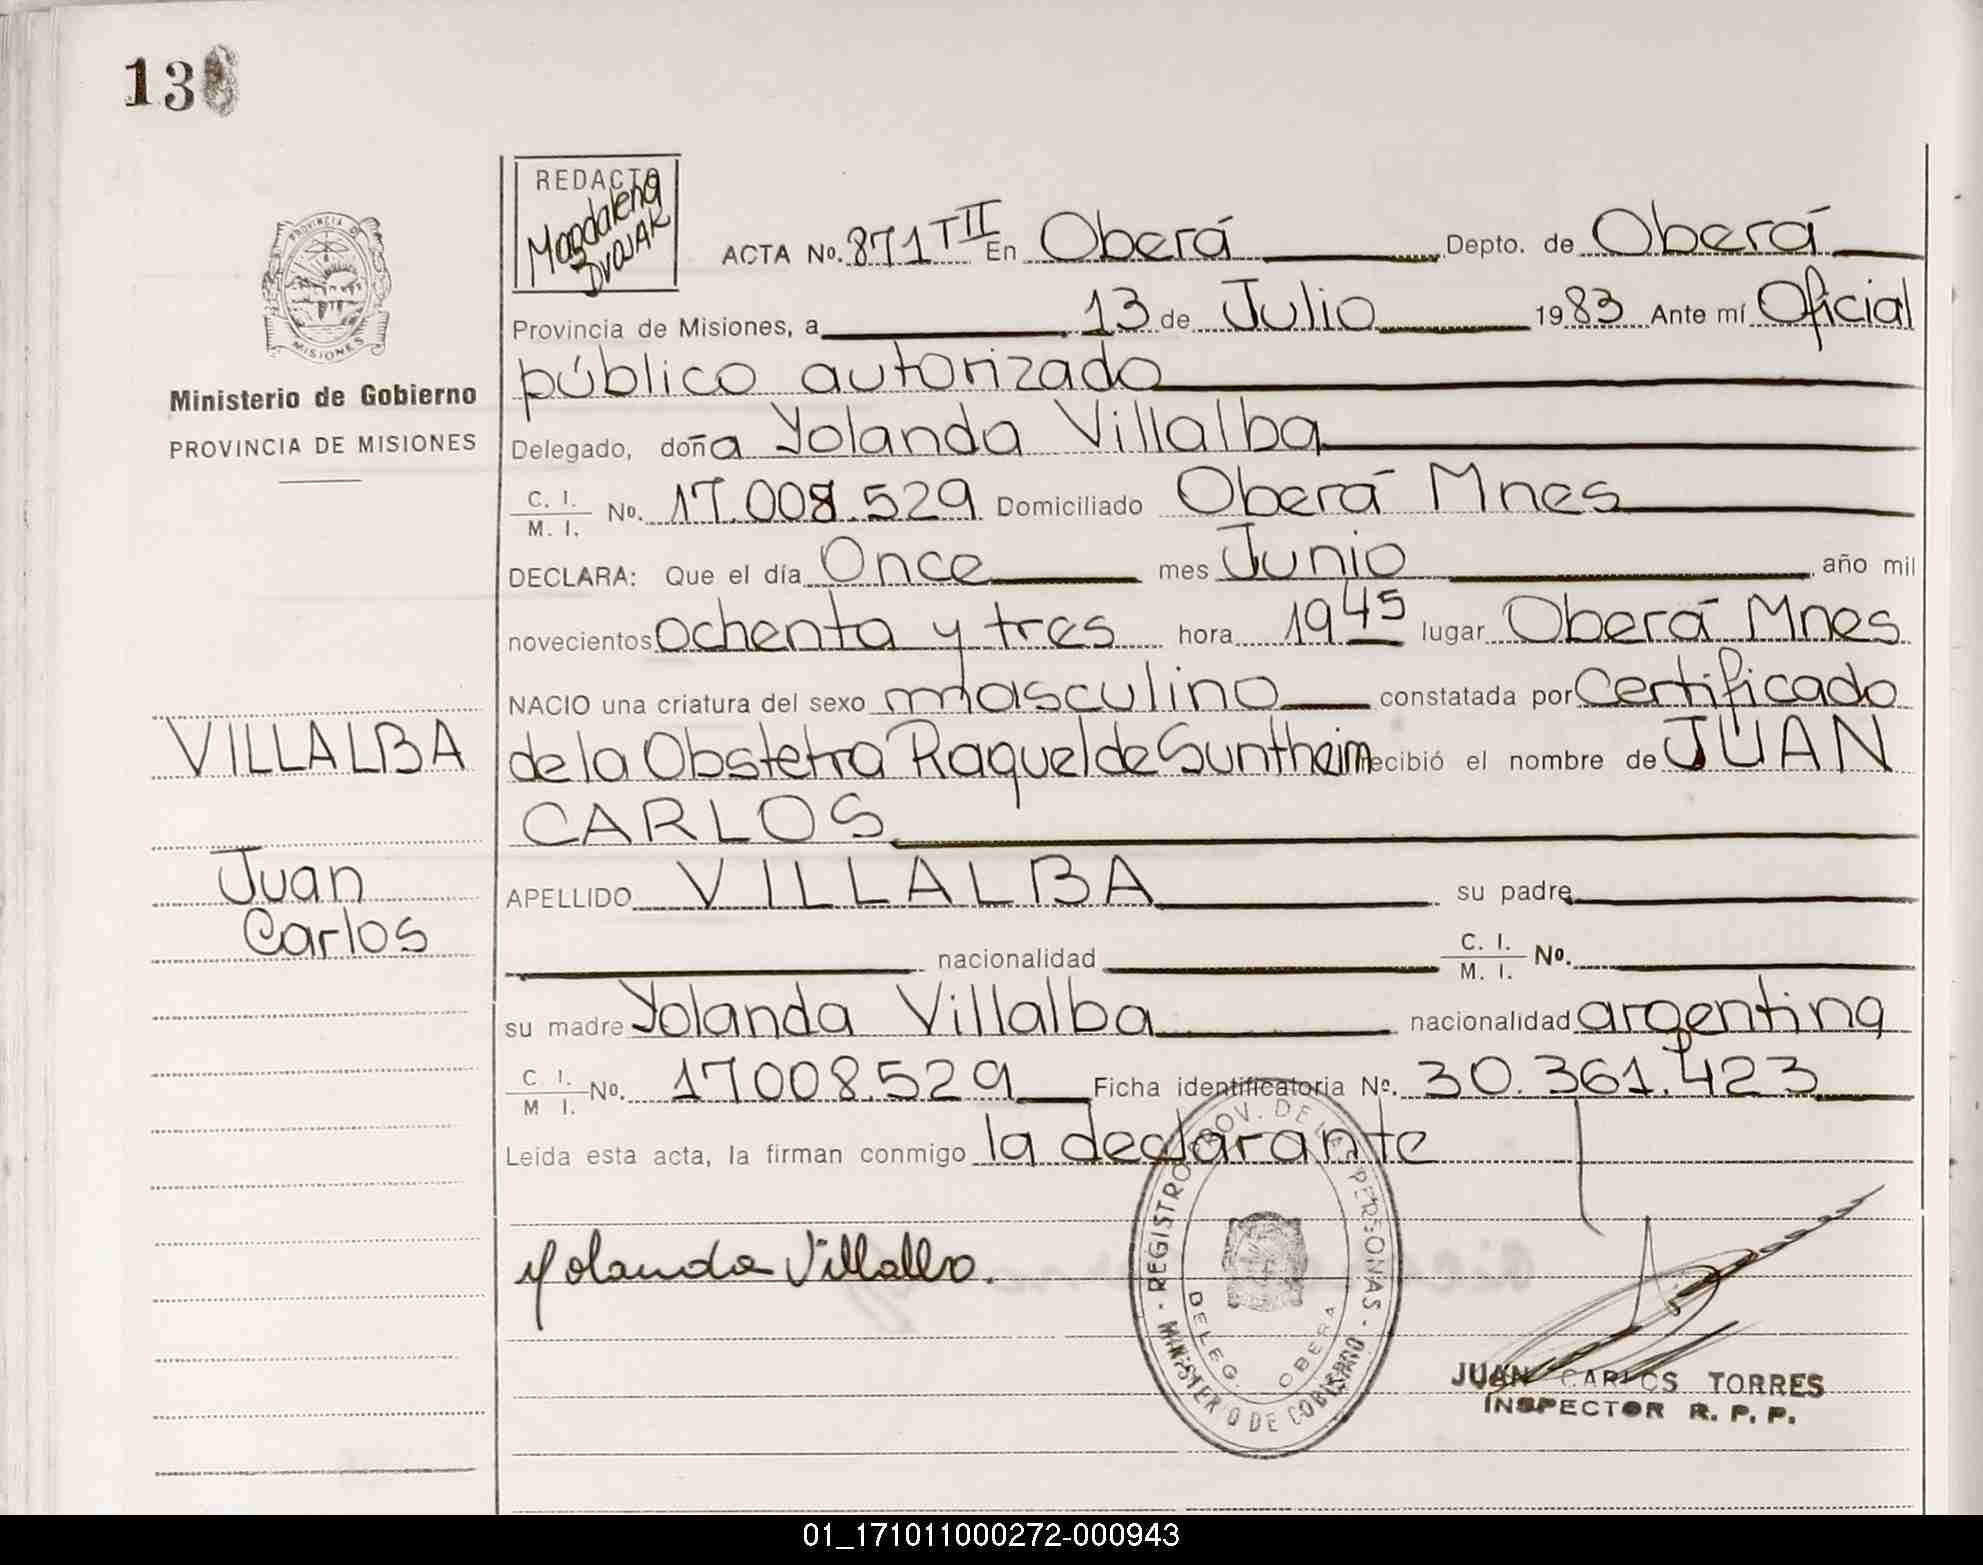 136
REDACTO
Magdalena
PROVINCIA DE
MISIONES
Ministerio de Gobierno
PROVINCIA DE MISIONES
ACTA No. 871 TII En Oberá Depto. de Oberá
Provincia de Misiones, a 13 de Julio 1983 Ante mí Oficial
público autorizado
Delegado, doña Yolanda Villalba
C. I. / M. I. No. 17.008.529 Domiciliado Oberá Mnes
DECLARA: Que el día Once mes Junio año mil
novecientos ochenta y tres hora 19 45 lugar Oberá Mnes
NACIO una criatura del sexo masculino constatada por Certificado
VILLALBA
de la Obstetra Raquel de Suntheim recibió el nombre de JUAN
CARLOS
Juan
Carlos
APELLIDO VILLALBA su padre
nacionalidad C. I. / M. I. No.
su madre Yolanda Villalba nacionalidad argentina
C. I. / M I. No. 17008.529 Ficha identificatoria No. 30.361.423
Leída esta acta, la firman conmigo la declarante
Yolanda Villalba.
REGISTRO PROV. DE LAS PERSONAS - MINISTERIO DE GOBIERNO
DELEG. OBERA
JUAN CARLOS TORRES
INSPECTOR R. P. P.
01_171011000272-000943